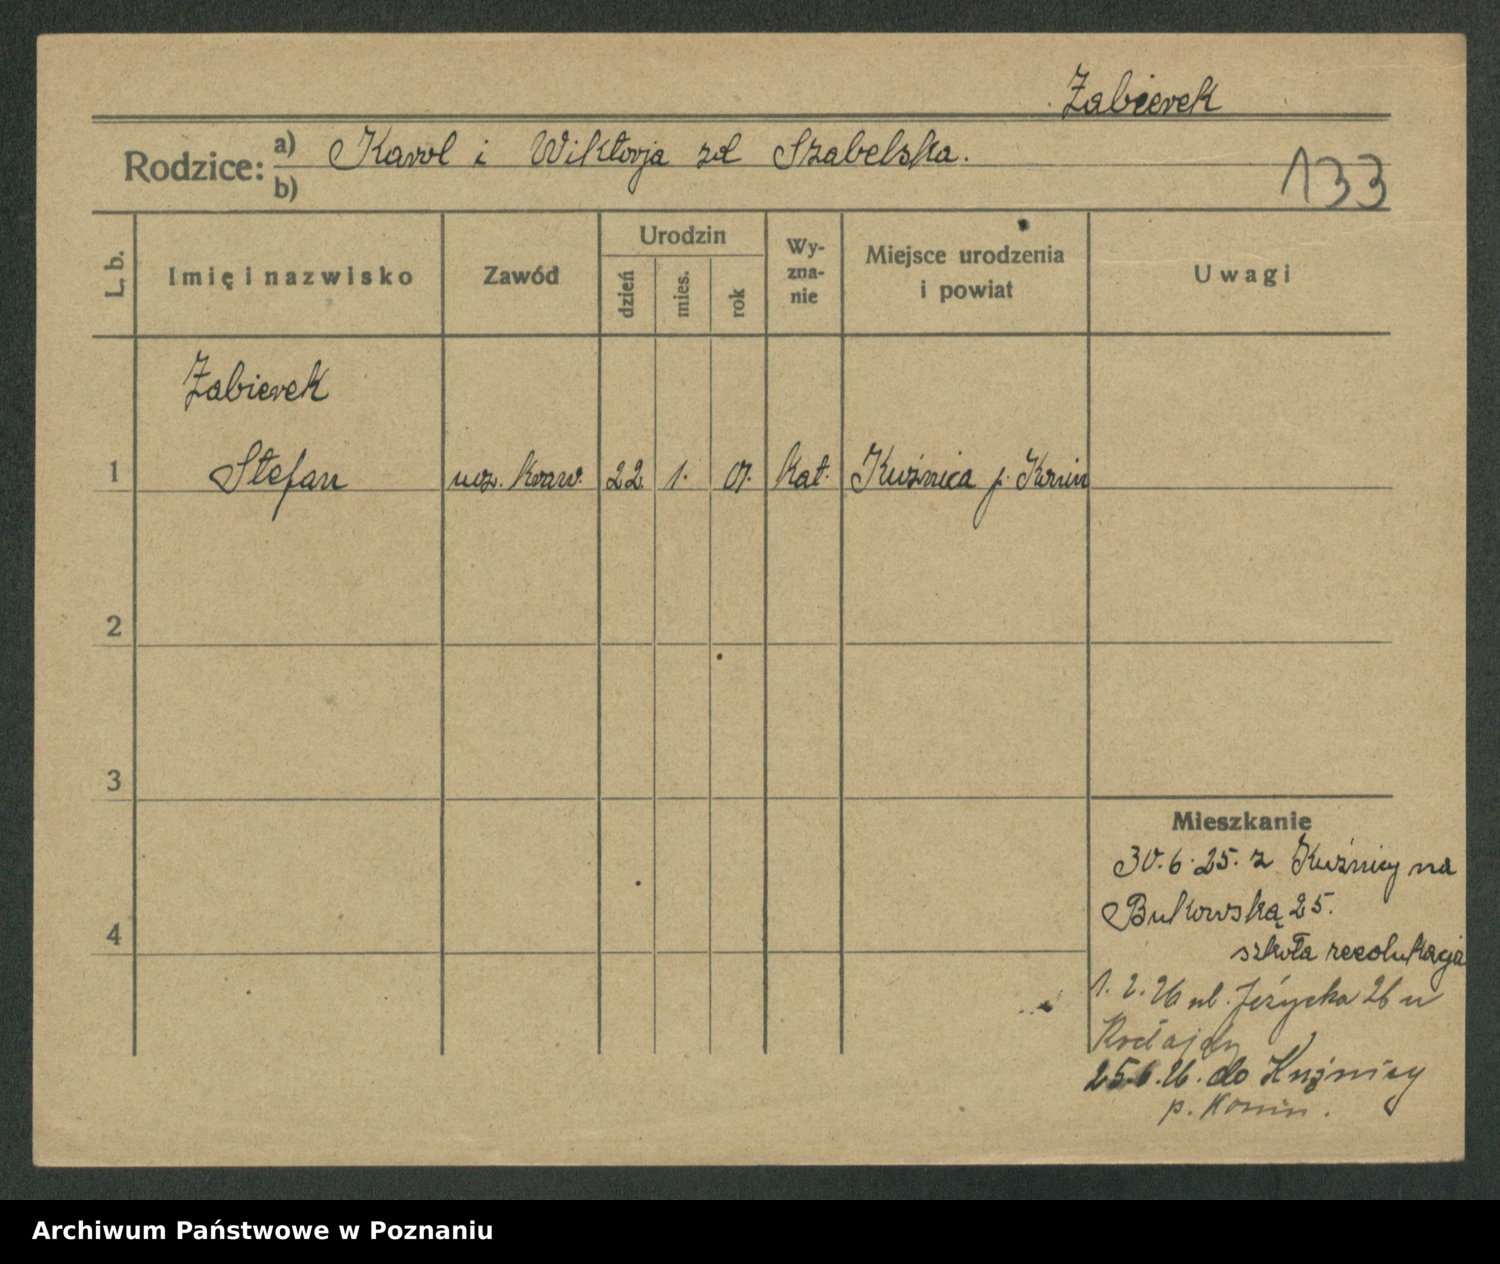 Żabierek
Rodzice: a) Karol i Wiktorja zd Szabelska.
b)
133
L. b.
Imię i nazwisko
Zawód
Urodzin
dzień
mies.
rok
Wy-
zna-
nie
Miejsce urodzenia
i powiat
Uwagi
Żabierek
1 Stefan ucz. kraw. 22. 1. 07. kat. Kuźnica p. Konin
2
3
4
Mieszkanie
30.6.25. z Kuźnicy na
Bukowską 25.
szkoła
1.2.26 ul. Jeżycka 26 u
25.6.26. do Kuźnicy
p. Konin.
Archiwum Państwowe w Poznaniu